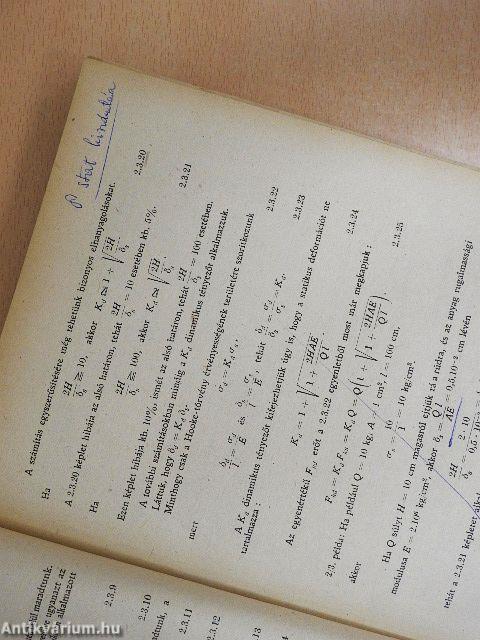 P stat kiindulása
A számítás egyszerűsítésére még tehetünk bizonyos elhanyagolásokat.
Ha 2H/δs ≥ 10, akkor Kd ≅ 1 + √(2H/δs) 2.3.20
A 2.3.20 képlet hibája az alsó határon, tehát 2H/δs = 10 esetében kb. 5%.
Ha 2H/δs ≥ 100, akkor Kd ≅ √(2H/δs) 2.3.21
Ezen képlet hibája kb. 10%, ismét az alsó határon, tehát 2H/δs = 100 esetében.
A további számításokban mindig a Kd dinamikus tényezőt alkalmazzuk.
Láttuk, hogy δd = Kd δs.
Minthogy csak a Hooke-törvény érvényességének területére szorítkozunk
σd = Kd σs, 2.3.22
mert δd/l = σd/E és δs/l = σs/E, tehát δd/δs = σd/σs = Kd.
A Kd dinamikus tényezőt kifejezhetjük úgy is, hogy a statikus deformációt ne
tartalmazza:
Kd = 1 + √(1 + 2HAE/Ql). 2.3.23
Az egyenértékű Fnd erőt a 2.3.22 egyenletből most már megkapjuk:
Fnd = Kd Fns = Kd Q = Q(1 + √(1 + 2HAE/Ql)) 2.3.24
2.3. példa: Ha például Q = 10 kg, A = 1 cm², l = 100 cm,
akkor σs = 10/1 = 10 kg/cm². 2.3.25
Ha Q súlyt H = 10 cm magasról ejtjük rá a rúdra, és az anyag rugalmassági
modulusa E = 2.10⁶ kg/cm², akkor δs = Ql/AE = 0,5.10⁻³ cm lévén
2H/δs = 2 · 10
tehát a 2.3.21 képletet
ül maradtunk.
e ugyanazt az
alkalmazott
2.3.9
2.3.10
radtunk, a
2.3.11
2.3.12
Antikvárium.hu